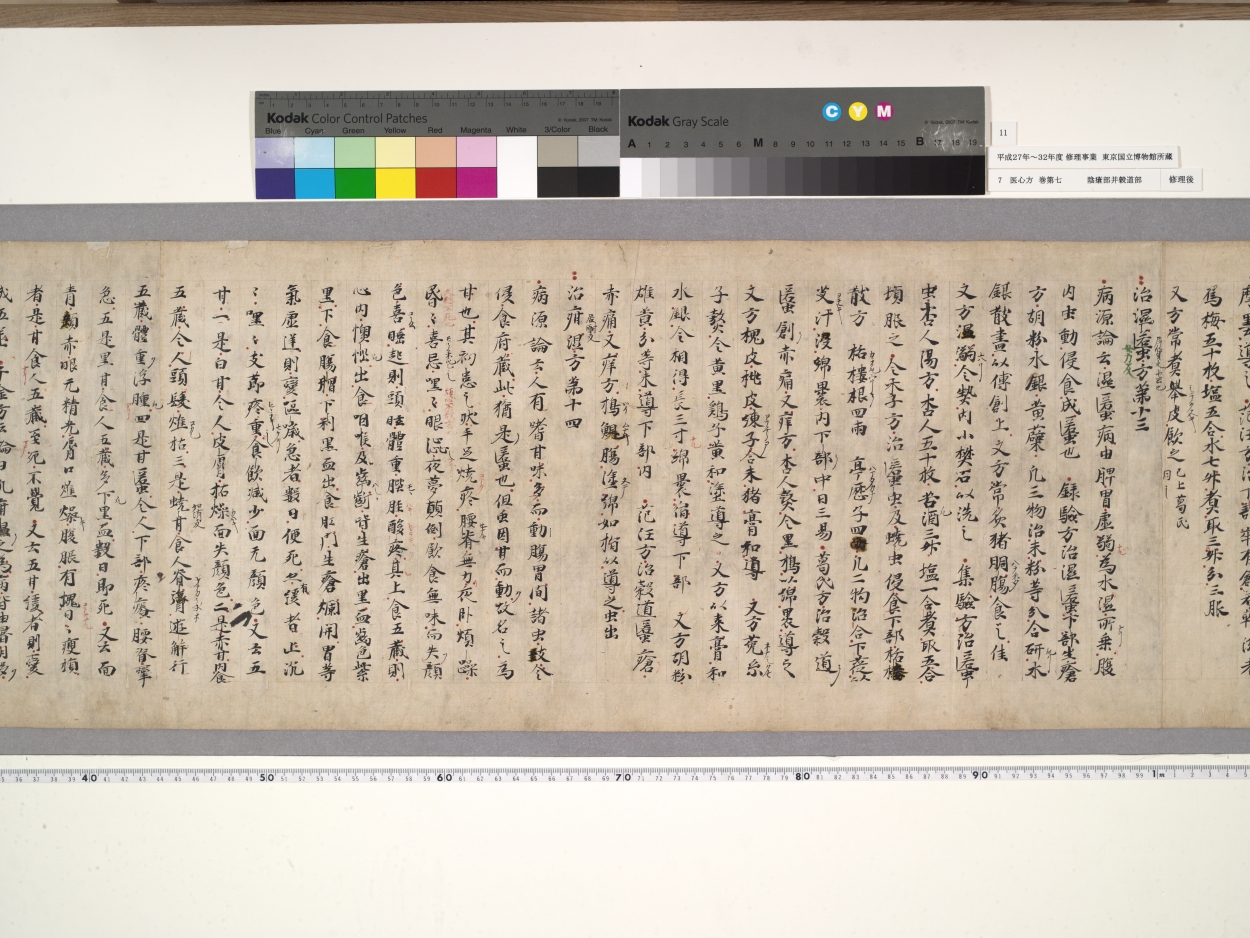 Kodak Color Control Patches
Blue Cyan Green Yellow Red Magenta White 3/Color Black
Kodak Gray Scale
C Y M
A 1 2 3 4 5 6 M 8 9 10 11 12 13 14 15 B 17 18 19
11
平成27年～32年度 修理事業 東京国立博物館所蔵
7 医心方 巻第七 陰瘡部并穀道部 修理後
烏梅五十枚塩五合水七升煮取三升分三服
又方常煮舉皮飲之 已上葛氏
治湿䘌方第十三
病源論云湿䘌病由脾胃虚弱為水湿所乗腹
内虫動侵食成䘌也 録驗方治湿䘌下部生瘡
方 胡粉水銀黄蘗 凡三物治末粉等分合研水
銀散盡以傅創上 又方常炙猪胴腸食之佳
又方温 令熱内小樊石以洗之 集驗方治䘌
虫杏人陽方 杏人五十枚苦酒三升塩一合煮取五合
頓服之 方治䘌虫及蟯虫侵食下部
散方 栝樓根四兩 亭歴子四 凡二物治合下簁以
艾汁浸綿裹内下部中日三易 葛氏方治穀道
䘌創赤痛又痒方 杏人熬令黒搗以綿裹導之
又方槐皮桃皮練子合末猪膏和導 又方莵糸
子熬令黄黒鶏子黄和塗導之 又方以朱膏和
水銀令相得長三寸綿裹宿導下部 又方胡粉
雄黄分等末導下部内 范汪方治穀道䘌瘡
赤痛又痒方搗 腸塗綿如指以導之虫出
治疳湿方第十四
病源論云人有嗜甘味多而動腸胃間諸虫致令
侵食府蔵此猶是䘌也但虫因甘而動故名之為
甘也其初患之状手足燒疼腰脊無力夜卧煩躁
昏々喜忌嘿々眼澁夜夢顛倒飲食無味面失顔
色喜睡起則頭眩體重䏶脛酸疼其上食五蔵則
心内懊憹出食咽喉及齒齗皆生瘡出黒血齒色紫
黒下食腸 下利黒血出食肛門生瘡爛開胃等
氣虚逆則變嘔噦急者數日便死也緩者 上沉
々嘿々支節疼重食飲減少面无顔色 又云五
甘一是白甘令人皮膚枯燥面失顔色二是赤甘
五蔵令人頭髮燋枯三是蟯甘食人脊膂遊行
五蔵體重浮腫四是甘䘌令人下部疼癢腰脊攣
急五是黒甘食人五蔵多下黒血數日即死 又云面
青頬赤眼无精光唇口燋燥腹脹有塊日々瘦損
者是甘食人五蔵至死不覺 又云五甘緩者則變